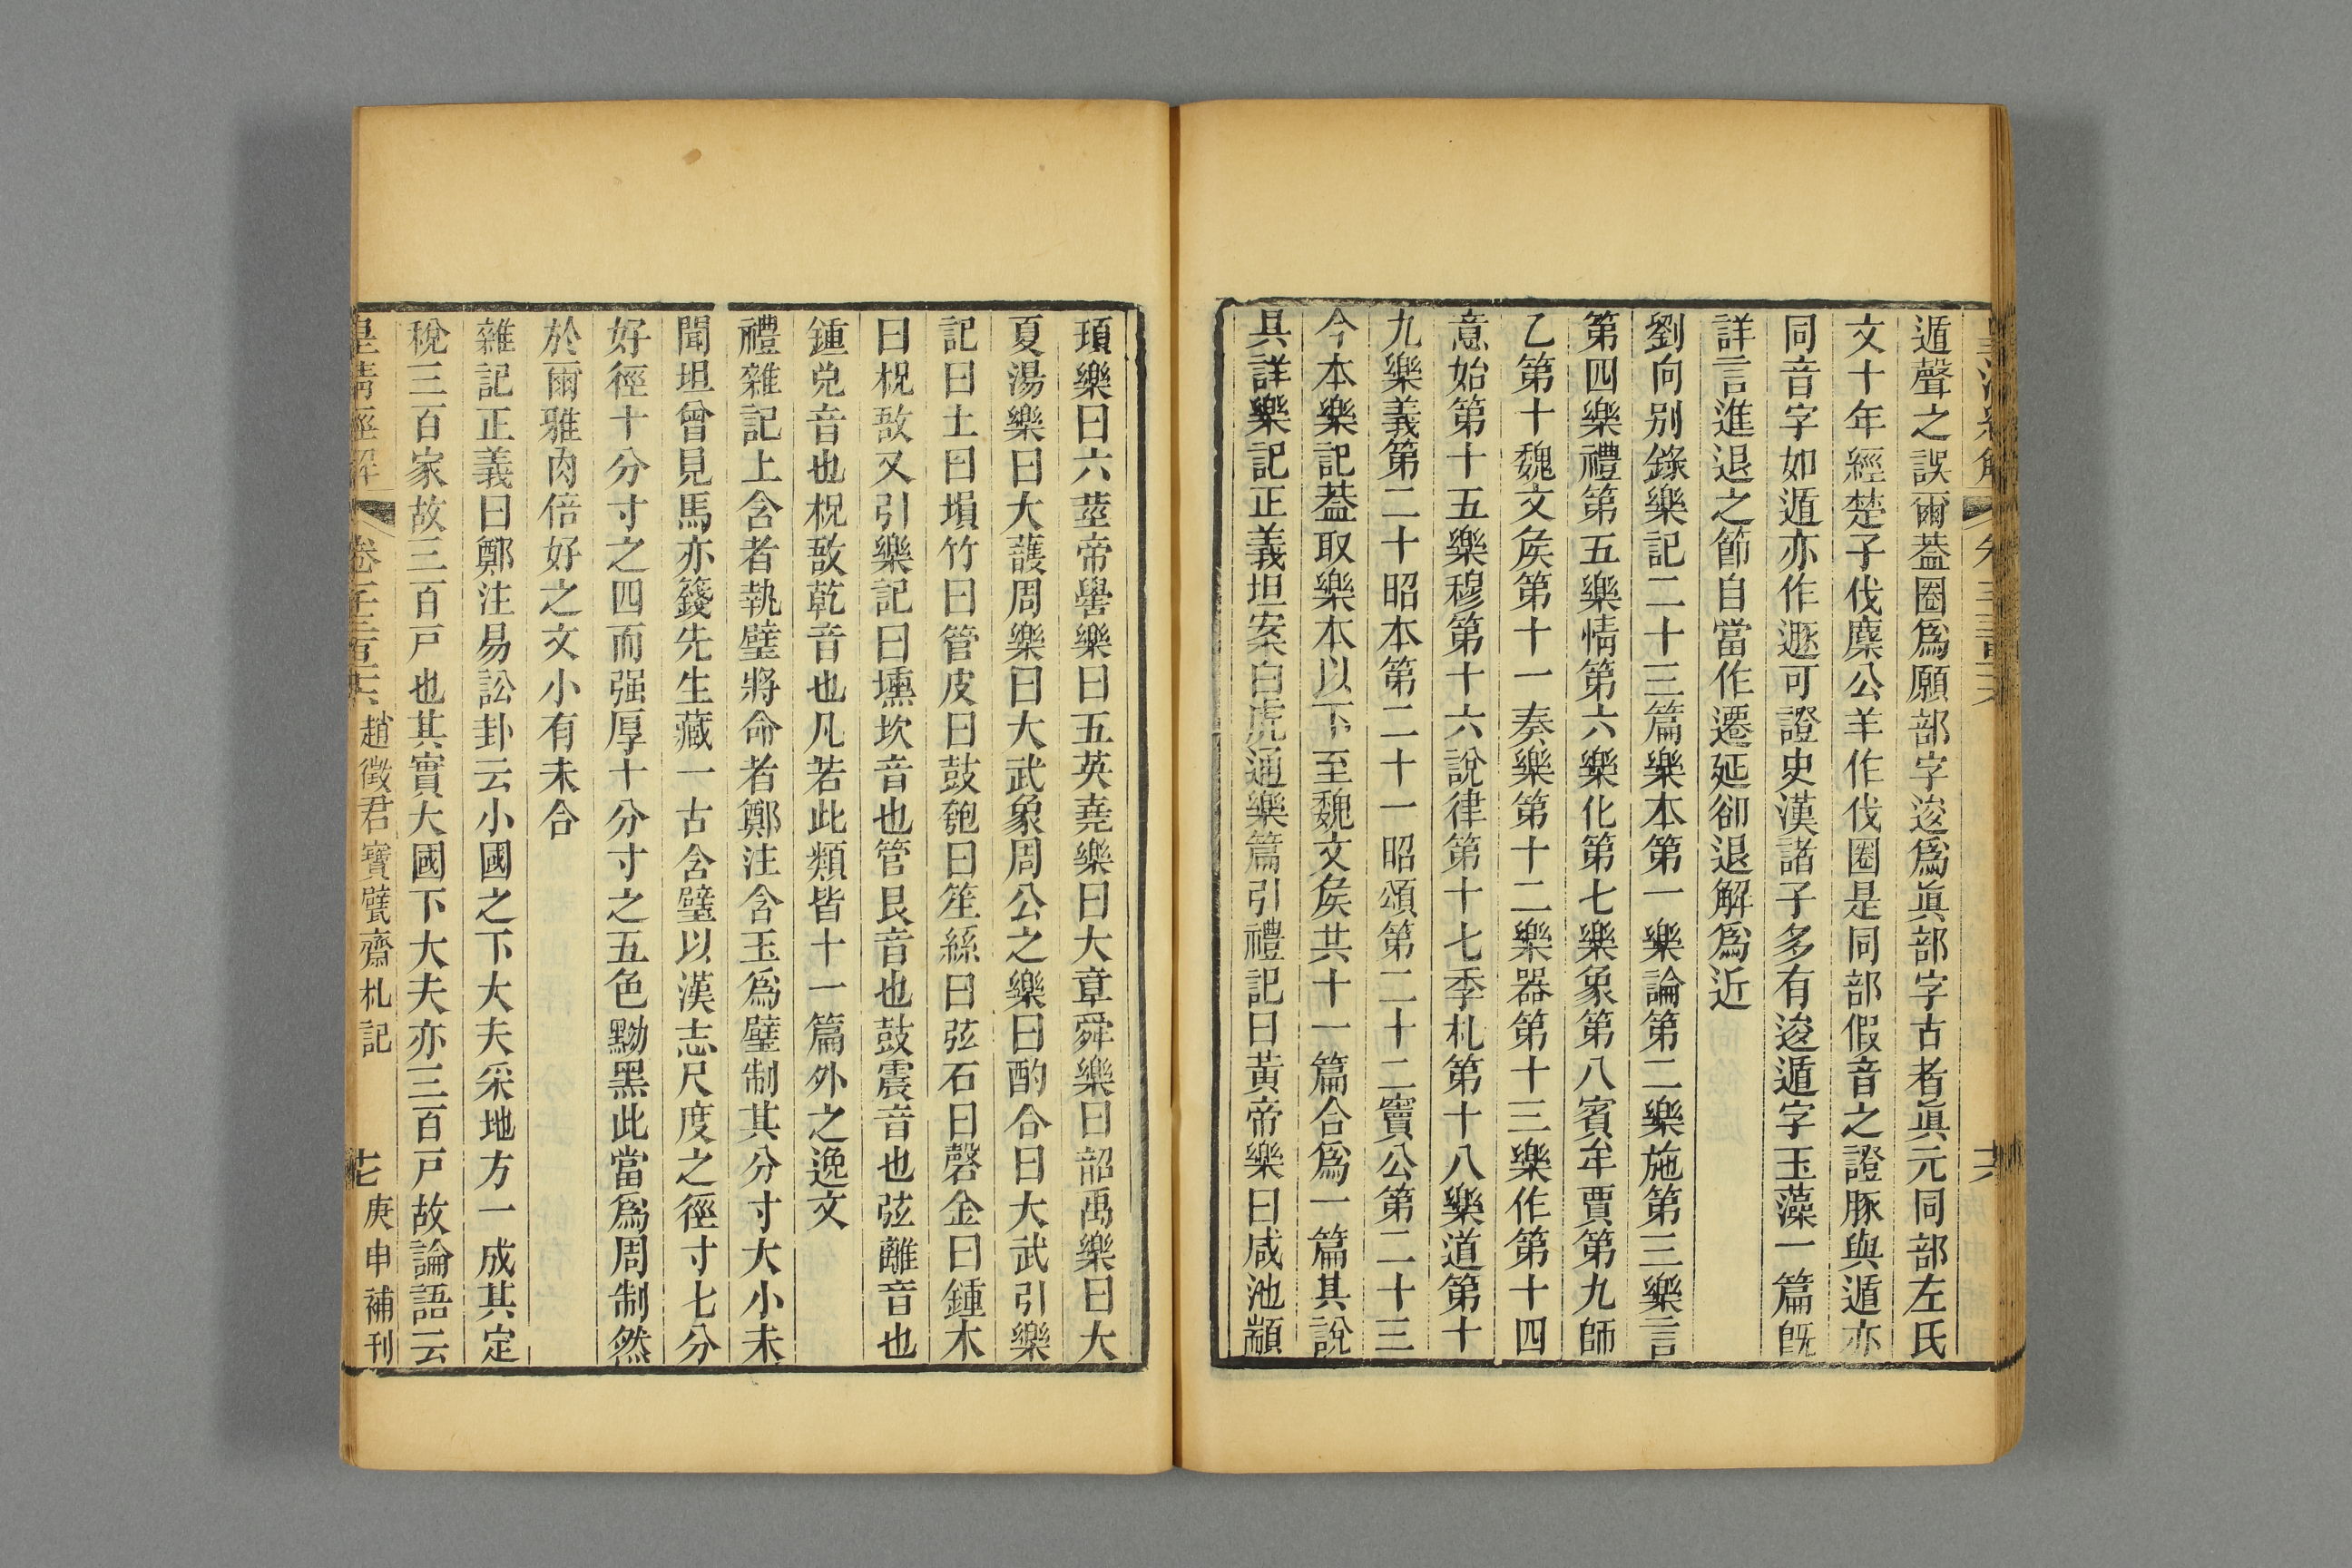 遁聲之誤爾葢圈爲願部字逡爲眞部字古者眞元同部左氏
文十年經楚子伐麋公羊作伐圈是同部假音之證豚與遁亦
同音字如遁亦作遯可證史漢諸子多有逡遁字玉藻一篇旣
詳言進退之節自當作遷延卻退解爲近
劉向别錄樂記二十三篇樂本第一樂論第二樂施第三樂言
第四樂禮第五樂情第六樂化第七樂象第八賓牟賈第九師
乙第十魏文矦第十一奏樂第十二樂器第十三樂作第十四
意始第十五樂穆第十六說律第十七季札第十八樂道第十
九樂義第二十昭本第二十一昭頌第二十二竇公第二十三
今本樂記葢取樂本以下至魏文矦共十一篇合爲一篇其說
具詳樂記正義坦案白虎通樂篇引禮記曰黃帝樂曰咸池顓
頊樂曰六莖帝嚳樂曰五英堯樂曰大章舜樂曰韶禹樂曰大
夏湯樂曰大護周樂曰大武象周公之樂曰酌合曰大武引樂
記曰土曰塤竹曰管皮曰鼓匏曰笙絲曰弦石曰磬金曰鍾木
曰柷敔又引樂記曰壎坎音也管艮音也鼓震音也弦離音也
鍾兌音也柷敔乾音也凡若此類皆十一篇外之逸文
禮雜記上含者執璧將命者鄭注含玉爲璧制其分寸大小未
聞坦曾見馬亦籛先生藏一古含璧以漢志尺度之徑寸七分
好徑十分寸之四而强厚十分寸之五色黝黑此當爲周制然
於爾雅肉倍好之文小有未合
雜記正義曰鄭注易訟卦云小國之下大夫采地方一成其定
稅三百家故三百戶也其實大國下大夫亦三百戶故論語云
皇清經解 卷一千三百十六 趙徵君寶甓齋札記 十七 庚申補刊